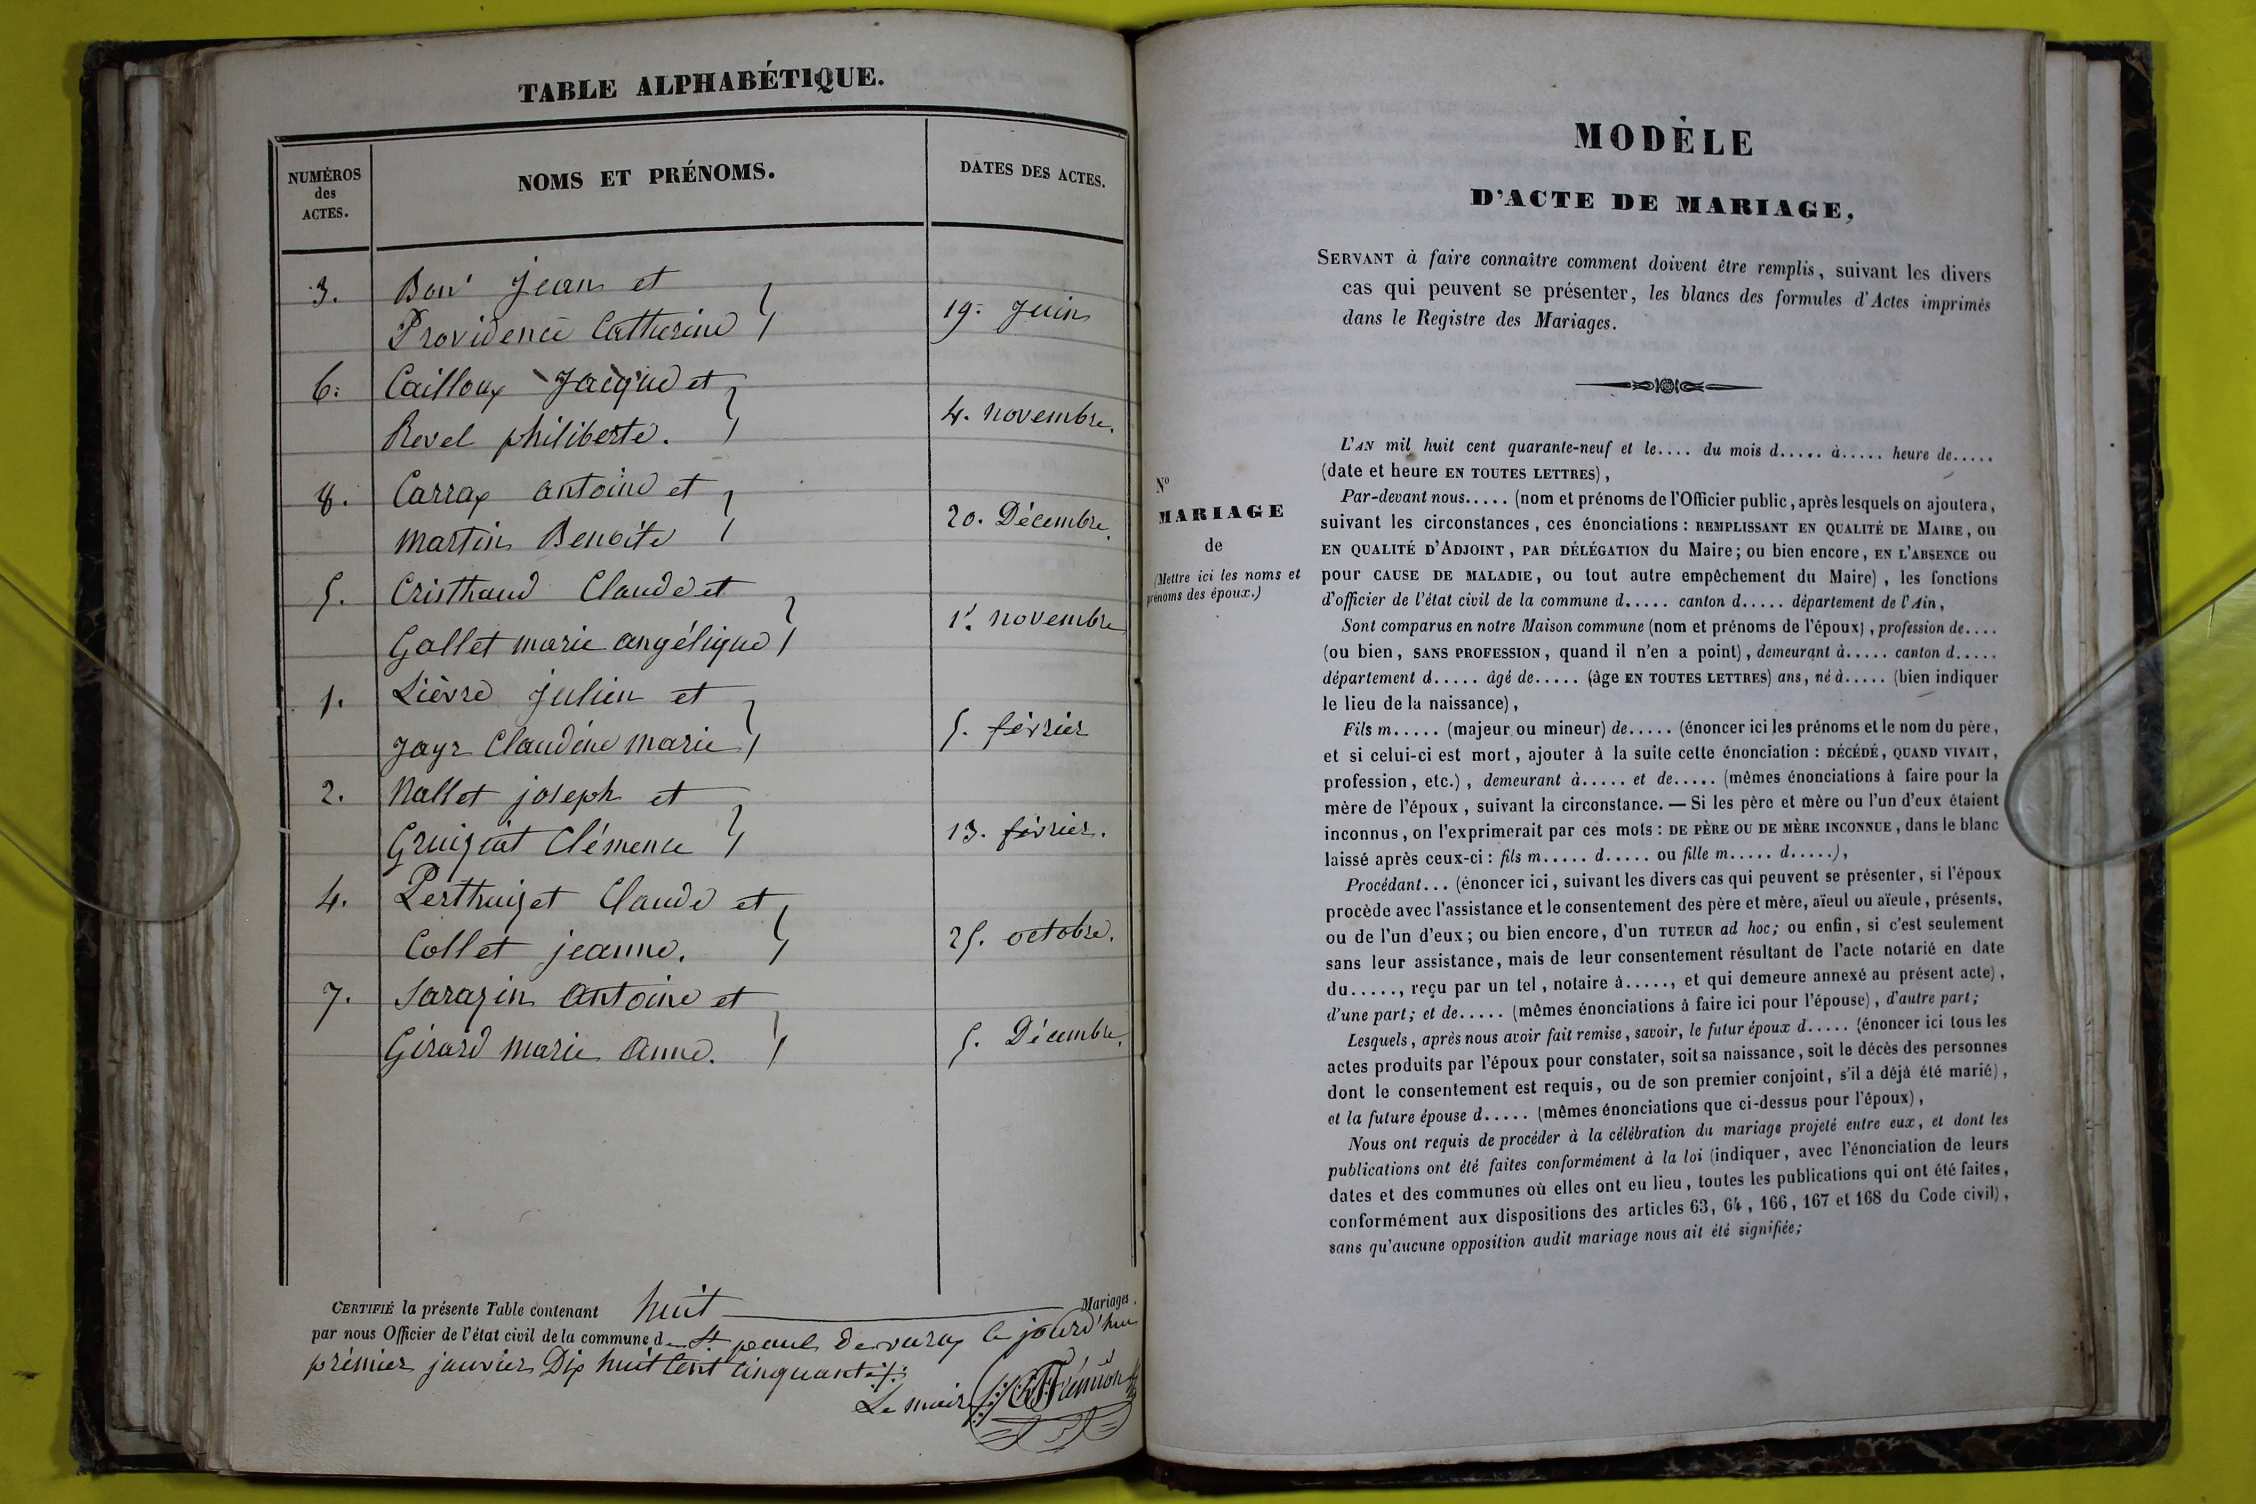 TABLE ALPHABÉTIQUE.
NUMÉROS
des
ACTES.
NOMS ET PRÉNOMS.
DATES DES ACTES.
3. Bon' Jean et
Providence Catherine 19. Juin
6. Cailloux Jacque et
Revel philiberte. 4. novembre.
8. Carrax antoine et
martin Benoite 20. Décembre.
5. Cristhaud Claude et
Gallet marie angélique 1er. novembre
1. Lièvre julien et
Jayr Claudine marie 5. février
2. Nallet joseph et
Gruiziat Clémence 13. février.
4. Perthuizet Claude et
Collet jeanne. 25. octobre.
7. Sarazin Antoine et
Girard marie Anne. 5. Décembre.
CERTIFIÉ la présente Table contenant huit Mariages.
par nous Officier de l'état civil de la commune de St paul de varax le jourd'hui
premier janvier Dix huit Cent cinquante
Le maire
MODÈLE
D'ACTE DE MARIAGE,
SERVANT à faire connaître comment doivent être remplis, suivant les divers
cas qui peuvent se présenter, les blancs des formules d'Actes imprimés
dans le Registre des Mariages.
N°
MARIAGE
de
(Mettre ici les noms et
prénoms des époux.)
L'AN mil huit cent quarante-neuf et le.... du mois d..... à..... heure de.....
(date et heure EN TOUTES LETTRES),
Par-devant nous..... (nom et prénoms de l'Officier public, après lesquels on ajoutera,
suivant les circonstances, ces énonciations : REMPLISSANT EN QUALITÉ DE MAIRE, ou
EN QUALITÉ D'ADJOINT, PAR DÉLÉGATION du Maire; ou bien encore, EN L'ABSENCE ou
pour CAUSE DE MALADIE, ou tout autre empêchement du Maire), les fonctions
d'officier de l'état civil de la commune d..... canton d..... département de l'Ain,
Sont comparus en notre Maison commune (nom et prénoms de l'époux), profession de....
(ou bien, SANS PROFESSION, quand il n'en a point), demeurant à..... canton d.....
département d..... âgé de..... (âge EN TOUTES LETTRES) ans, né à..... (bien indiquer
le lieu de la naissance),
Fils m..... (majeur ou mineur) de..... (énoncer ici les prénoms et le nom du père,
et si celui-ci est mort, ajouter à la suite cette énonciation : DÉCÉDÉ, QUAND VIVAIT,
profession, etc.), demeurant à..... et de..... (mêmes énonciations à faire pour la
mère de l'époux, suivant la circonstance. — Si les père et mère ou l'un d'eux étaient
inconnus, on l'exprimerait par ces mots : DE PÈRE OU DE MÈRE INCONNUE, dans le blanc
laissé après ceux-ci : fils m..... d..... ou fille m..... d.....),
Procédant... (énoncer ici, suivant les divers cas qui peuvent se présenter, si l'époux
procède avec l'assistance et le consentement des père et mère, aïeul ou aïeule, présents,
ou de l'un d'eux; ou bien encore, d'un TUTEUR ad hoc; ou enfin, si c'est seulement
sans leur assistance, mais de leur consentement résultant de l'acte notarié en date
du....., reçu par un tel, notaire à....., et qui demeure annexé au présent acte),
d'une part; et de..... (mêmes énonciations à faire ici pour l'épouse), d'autre part;
Lesquels, après nous avoir fait remise, savoir, le futur époux d..... (énoncer ici tous les
actes produits par l'époux pour constater, soit sa naissance, soit le décès des personnes
dont le consentement est requis, ou de son premier conjoint, s'il a déjà été marié),
et la future épouse d..... (mêmes énonciations que ci-dessus pour l'époux),
Nous ont requis de procéder à la célébration du mariage projeté entre eux, et dont les
publications ont été faites conformément à la loi (indiquer, avec l'énonciation de leurs
dates et des communes où elles ont eu lieu, toutes les publications qui ont été faites,
conformément aux dispositions des articles 63, 64, 166, 167 et 168 du Code civil),
sans qu'aucune opposition audit mariage nous ait été signifiée;